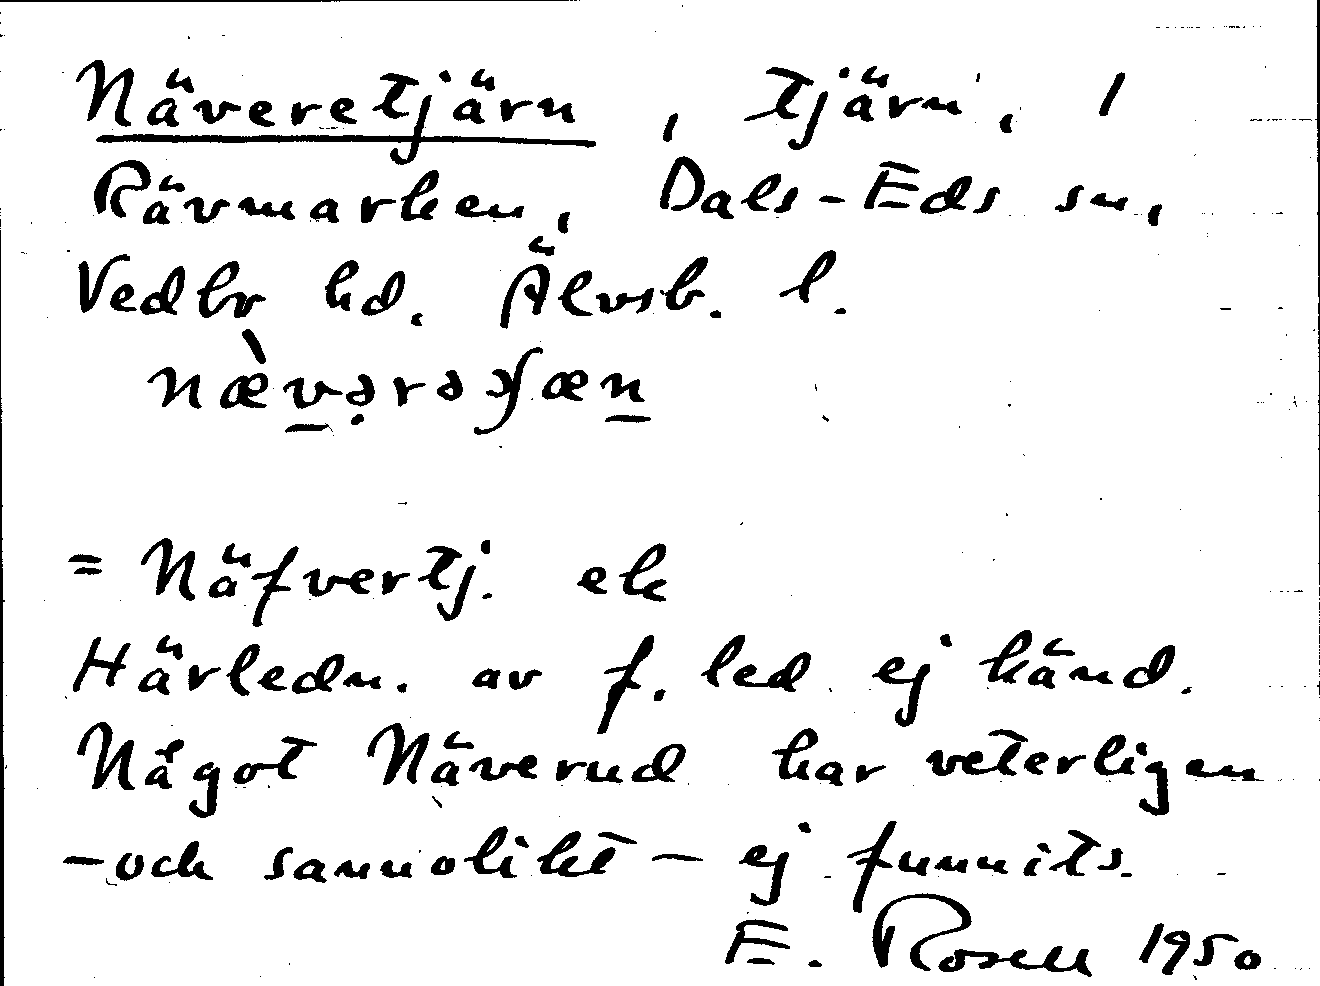 Näveretjärn, tjärn, 1
Rävmarken, Dals-Eds sn,
Vedbo hd. Älvsb. l.
= Näfvertj. ek
Härledn. av f. led ej känd.
Något Näverud har veterligen
- och sannolikt - ej funnits.
E. Rosell 1950